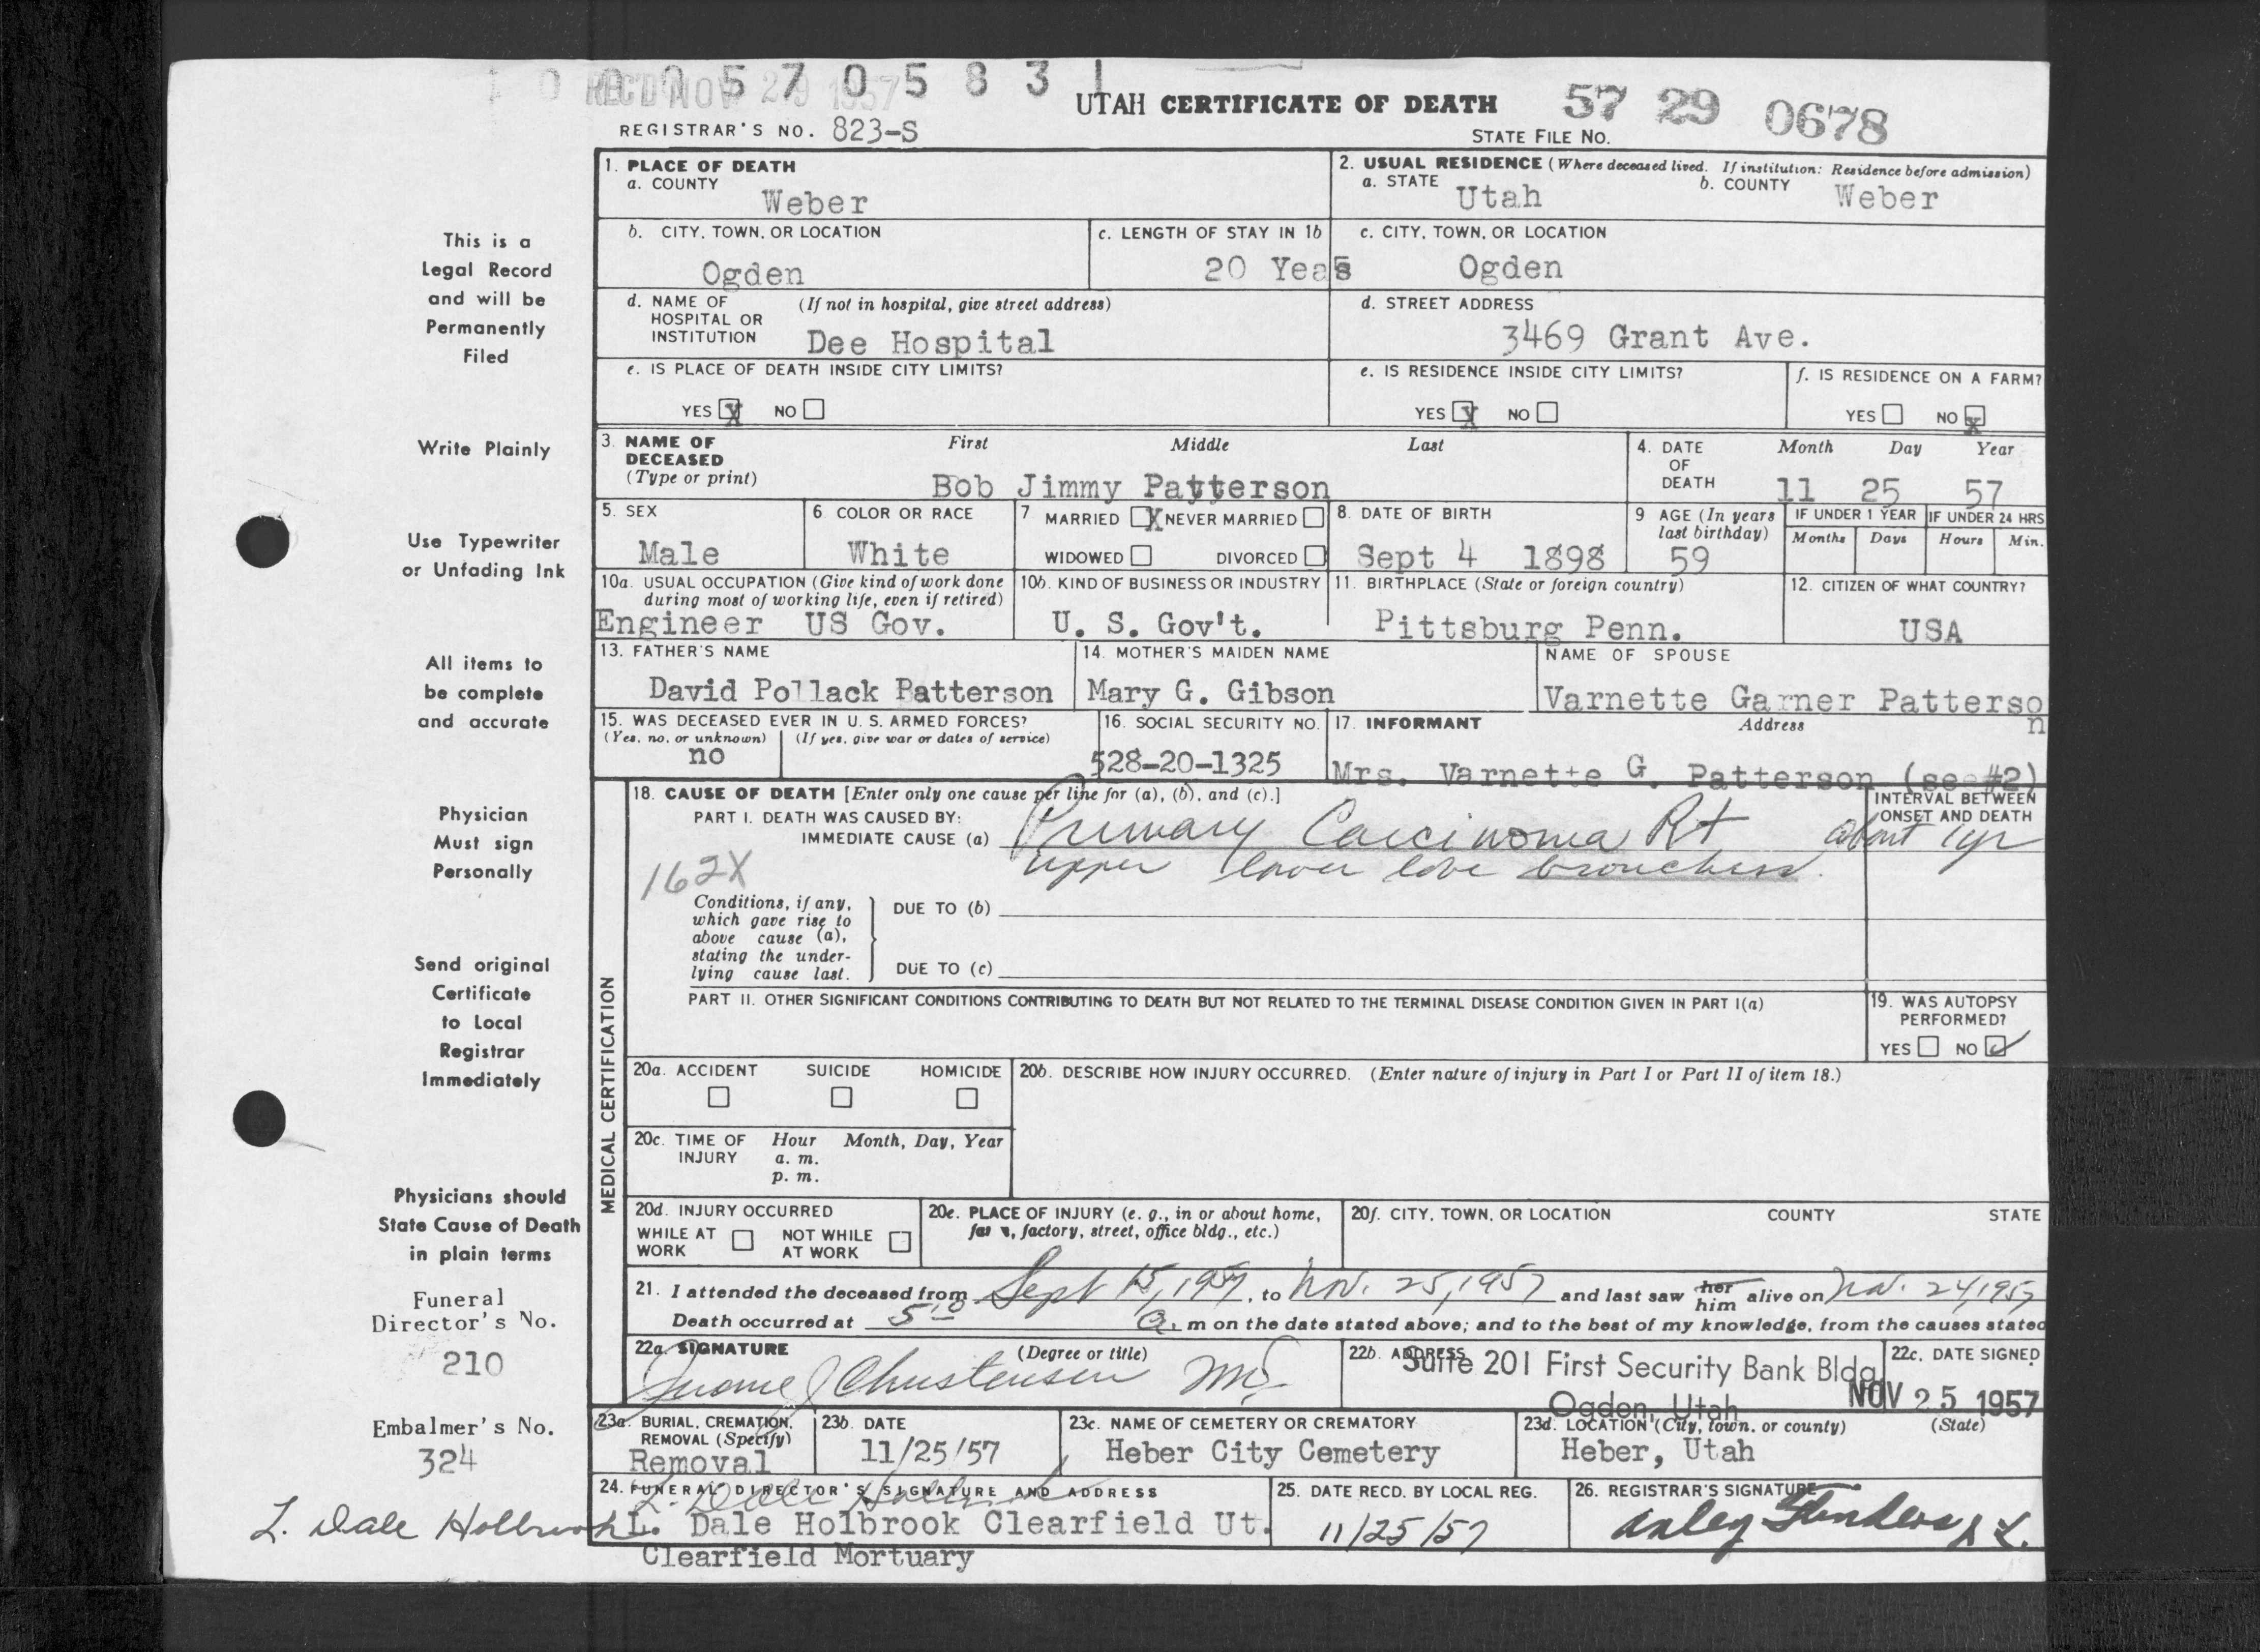 1 0 0 0 5 7 0 5 8 3 1
REC'D NOV 29 1957
UTAH CERTIFICATE OF DEATH
57 29 0678
REGISTRAR'S NO. 823-S
STATE FILE NO.
This is a
Legal Record
and will be
Permanently
Filed
Write Plainly
Use Typewriter
or Unfading Ink
All items to
be complete
and accurate
Physician
Must sign
Personally
Send original
Certificate
to Local
Registrar
Immediately
Physicians should
State Cause of Death
in plain terms
Funeral
Director's No.
210
Embalmer's No.
324
L. Dale Holbrook
1. PLACE OF DEATH
a. COUNTY
Weber
2. USUAL RESIDENCE (Where deceased lived. If institution: Residence before admission)
a. STATE
Utah
b. COUNTY
Weber
b. CITY, TOWN, OR LOCATION
Ogden
c. LENGTH OF STAY IN 1b
20 Years
c. CITY, TOWN, OR LOCATION
Ogden
d. NAME OF HOSPITAL OR INSTITUTION
(If not in hospital, give street address)
Dee Hospital
d. STREET ADDRESS
3469 Grant Ave.
e. IS PLACE OF DEATH INSIDE CITY LIMITS?
YES X NO
e. IS RESIDENCE INSIDE CITY LIMITS?
YES X NO
f. IS RESIDENCE ON A FARM?
YES NO X
3. NAME OF DECEASED
(Type or print)
First Middle Last
Bob Jimmy Patterson
4. DATE OF DEATH
Month Day Year
11 25 57
5. SEX
Male
6. COLOR OR RACE
White
7. MARRIED X NEVER MARRIED
WIDOWED DIVORCED
8. DATE OF BIRTH
Sept 4 1898
9 AGE (In years last birthday)
59
IF UNDER 1 YEAR
Months Days
IF UNDER 24 HRS
Hours Min.
10a. USUAL OCCUPATION (Give kind of work done during most of working life, even if retired)
Engineer US Gov.
10b. KIND OF BUSINESS OR INDUSTRY
U. S. Gov't.
11. BIRTHPLACE (State or foreign country)
Pittsburg Penn.
12. CITIZEN OF WHAT COUNTRY?
USA
13. FATHER'S NAME
David Pollack Patterson
14. MOTHER'S MAIDEN NAME
Mary G. Gibson
NAME OF SPOUSE
Varnette Garner Patterson
15. WAS DECEASED EVER IN U. S. ARMED FORCES?
(Yes, no, or unknown) (If yes, give war or dates of service)
no
16. SOCIAL SECURITY NO.
528-20-1325
17. INFORMANT Address
Mrs. Varnette G. Patterson (see #2)
MEDICAL CERTIFICATION
18. CAUSE OF DEATH [Enter only one cause per line for (a), (b), and (c).]
PART I. DEATH WAS CAUSED BY:
IMMEDIATE CAUSE (a) Primary Carcinoma Rt
upper lower lobe bronchus.
162X
INTERVAL BETWEEN ONSET AND DEATH
about 1 yr
Conditions, if any, which gave rise to above cause (a), stating the underlying cause last.
DUE TO (b)
DUE TO (c)
PART II. OTHER SIGNIFICANT CONDITIONS CONTRIBUTING TO DEATH BUT NOT RELATED TO THE TERMINAL DISEASE CONDITION GIVEN IN PART I(a)
19. WAS AUTOPSY PERFORMED?
YES NO ✓
20a. ACCIDENT SUICIDE HOMICIDE
20b. DESCRIBE HOW INJURY OCCURRED. (Enter nature of injury in Part I or Part II of item 18.)
20c. TIME OF INJURY
Hour Month, Day, Year
a. m.
p. m.
20d. INJURY OCCURRED
WHILE AT WORK NOT WHILE AT WORK
20e. PLACE OF INJURY (e. g., in or about home, farm, factory, street, office bldg., etc.)
20f. CITY, TOWN, OR LOCATION COUNTY STATE
21. I attended the deceased from Sept 15, 1957, to Nov. 25, 1957 and last saw her him alive on Nov. 24, 1957
Death occurred at 5:10 a. m on the date stated above; and to the best of my knowledge, from the causes stated
22a. SIGNATURE (Degree or title)
Christensen MD
22b. ADDRESS
Suite 201 First Security Bank Bldg
Ogden, Utah
22c. DATE SIGNED
NOV 25 1957
23a. BURIAL, CREMATION, REMOVAL (Specify)
Removal
23b. DATE
11/25/57
23c. NAME OF CEMETERY OR CREMATORY
Heber City Cemetery
23d. LOCATION (City, town, or county) (State)
Heber, Utah
24. FUNERAL DIRECTOR'S SIGNATURE AND ADDRESS
L. Dale Holbrook
L. Dale Holbrook Clearfield Ut.
Clearfield Mortuary
25. DATE RECD. BY LOCAL REG.
11/25/57
26. REGISTRAR'S SIGNATURE